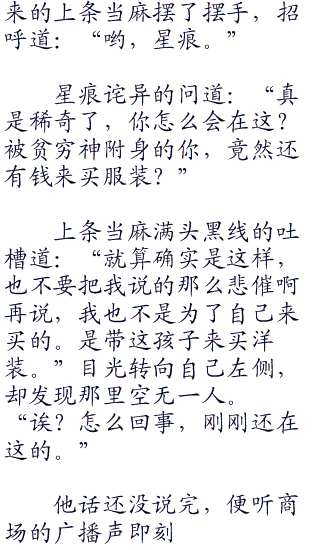 来的上条当麻摆了摆手，招
呼道：“哟，星痕。”
星痕诧异的问道：“真
是稀奇了，你怎么会在这？
被贫穷神附身的你，竟然还
有钱来买服装？”
上条当麻满头黑线的吐
槽道：“就算确实是这样，
也不要把我说的那么悲催啊
再说，我也不是为了自己来
买的。是带这孩子来买洋
装。”目光转向自己左侧，
却发现那里空无一人。
“诶？怎么回事，刚刚还在
这的。”
他话还没说完，便听商
场的广播声即刻